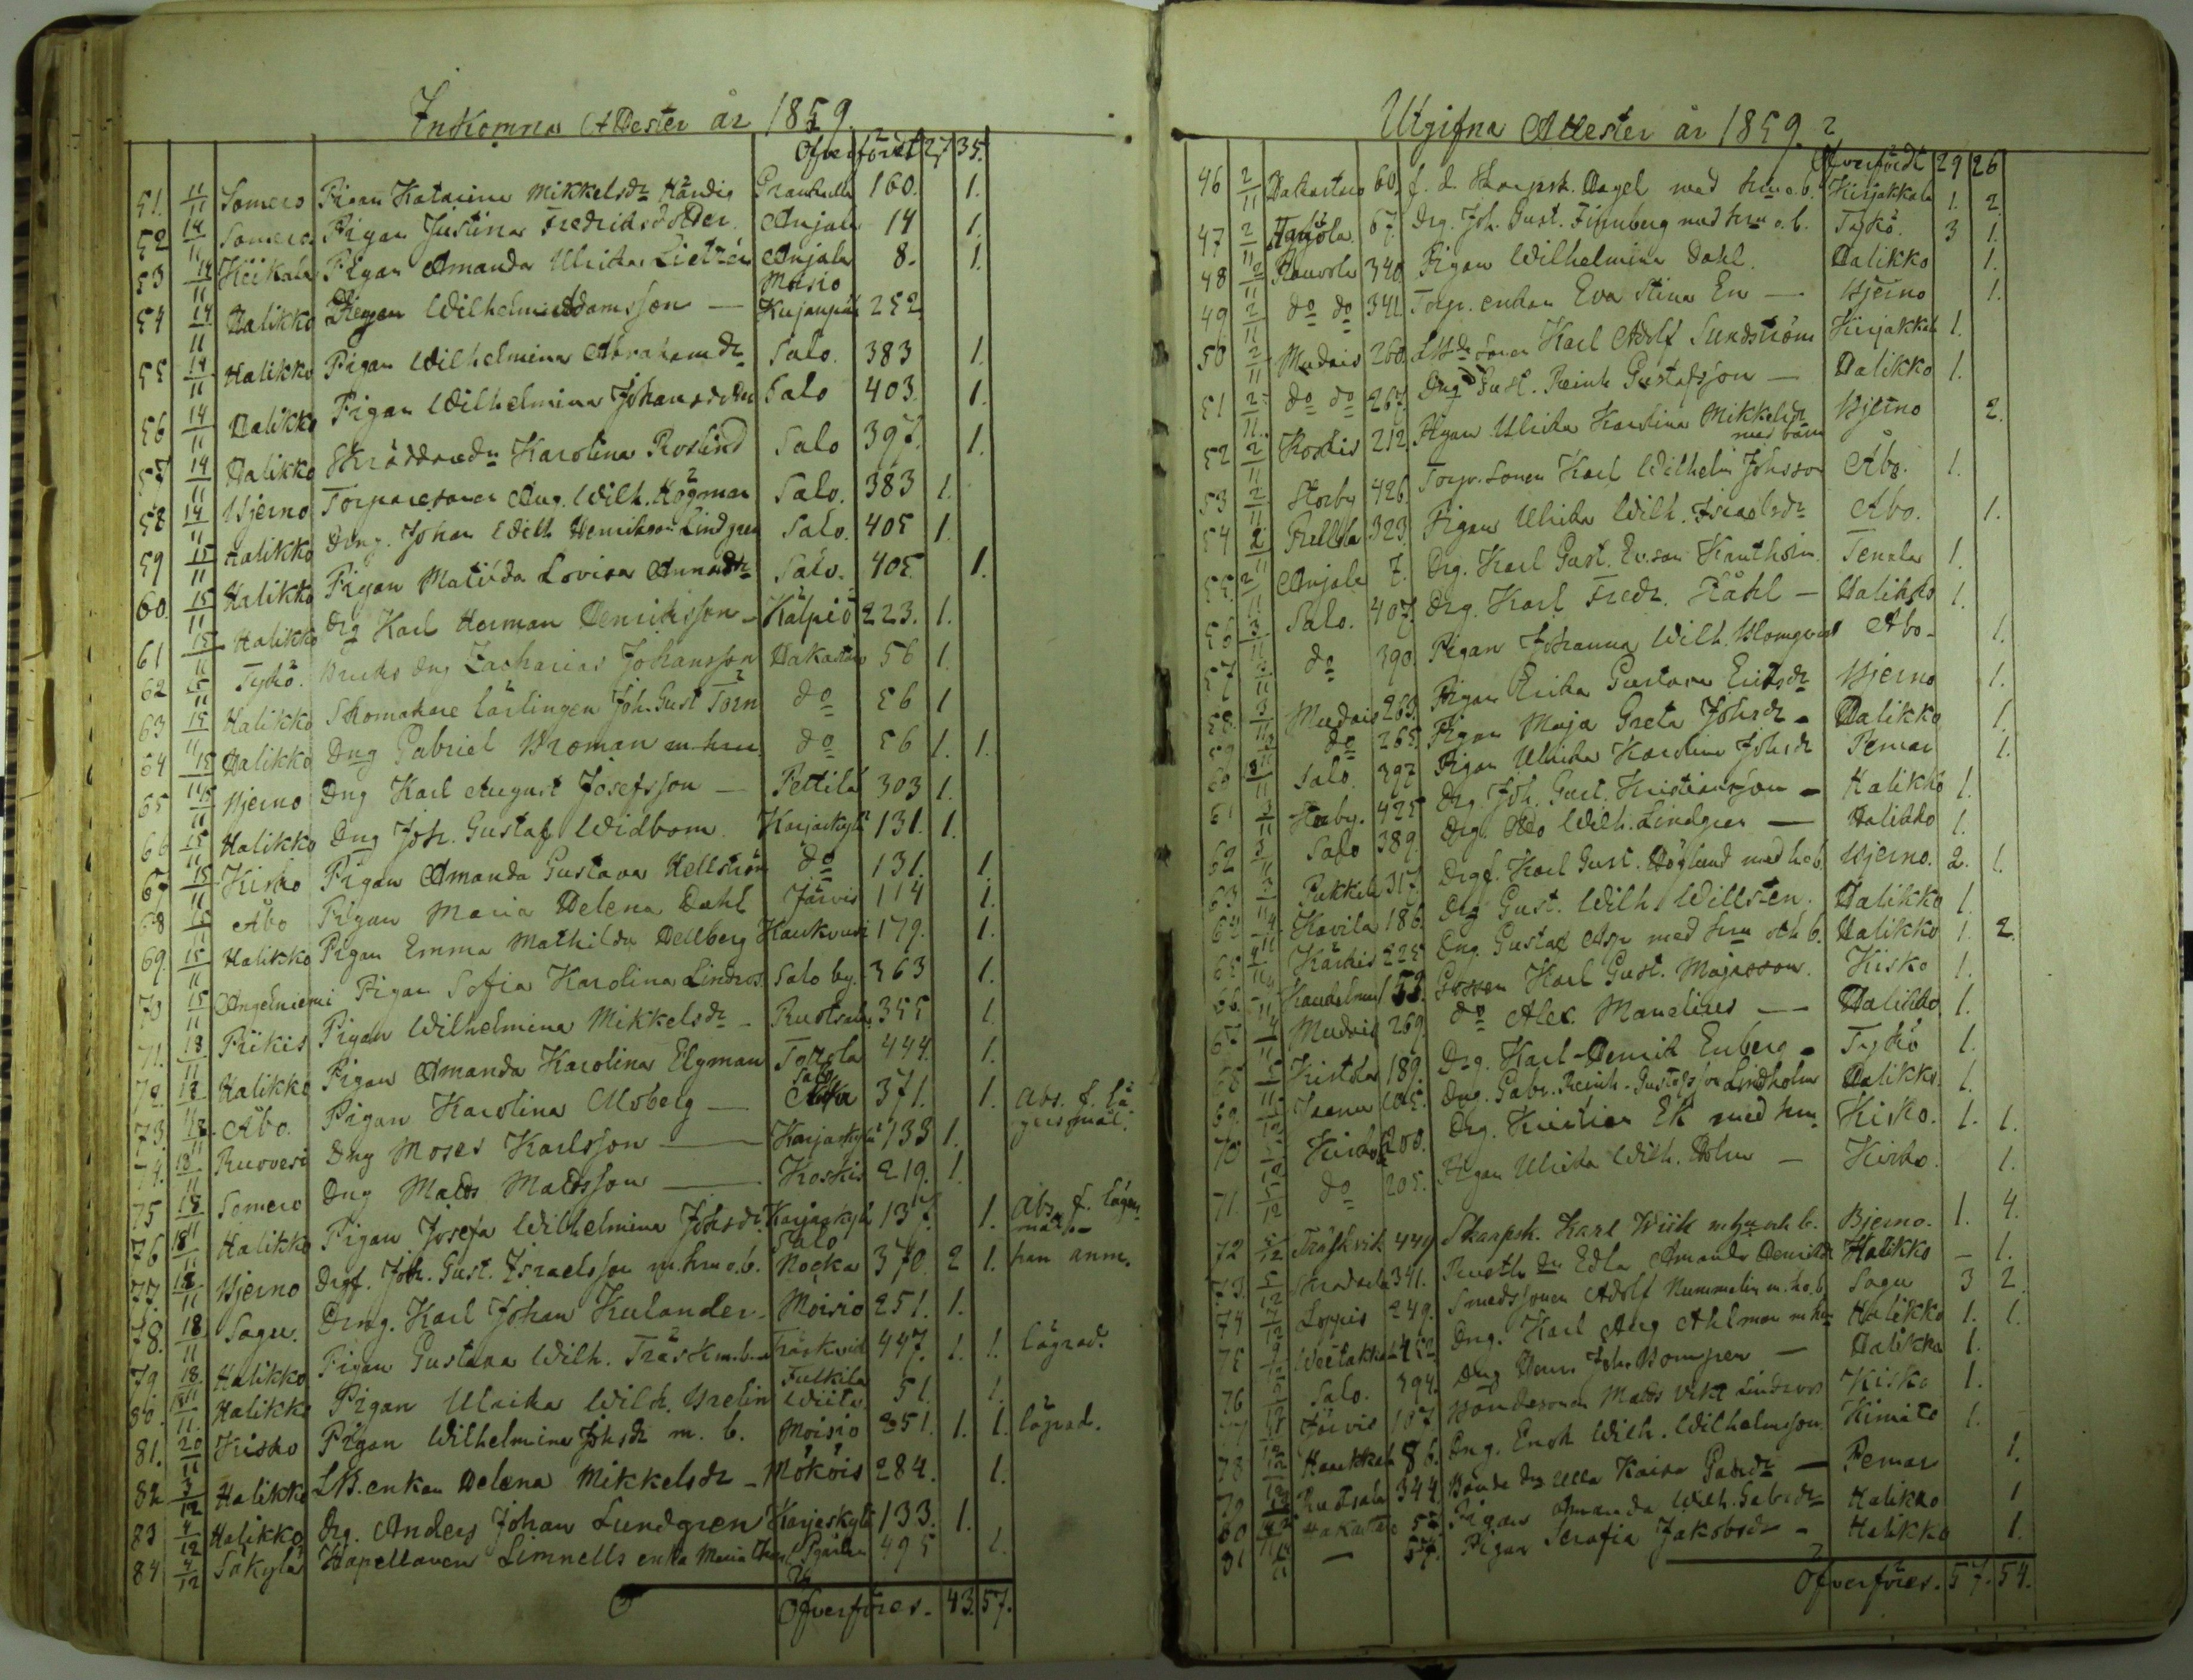 Inkomna Attester år 1859.
Öfverfördt 27 35.
51. 11/11 Somero Pigan Katarina Mikkelsdr Härdig 160. 1.
52 14/11 Somero Pigan Justina Fredriksdotter Anjala 14 1.
53 14/11 Kiikala Pigan Amanda Ulrika Anjala 8. 1.
Moisio
54 14/11 Halikko Wilhelm Adamsson — 252
55 14/11 Halikko Pigan Wilhelmina Abrahamsdr Salo. 383 1.
56 14/11 Halikko Pigan Wilhelmina Johansdotter Salo 403. 1.
57 14/11 Halikko Karolina Roslind Salo 397. 1.
58 14/11 Bjerno Torparesonen Aug. Wilh. Högman Salo. 383 1.
59 15/11 Halikko Dräng. Johan Wilh Henriksson Lindgren Salo. 405 1.
60. 15/11 Halikko Pigan Matilda Lovisa Salo. 405. 1.
61 15/11 Halikko Drg Karl Herman Henriksson - Kälpiö 223. 1.
62 15/11 Tykö. Bruks dng Zacharias Johansson Hakastaro 56 1.
63 15/11 Halikko Skomakare lärlingen Joh. Gust Törn do 56 1
64 15/11 Halikko Dng Gabriel Broman m hru do 56 1. 1.
65 15/11 Bjerno Dng Karl August Josefsson — Pettilä 303 1.
66 15/11 Halikko Dng Joh. Gustaf Widbom. Karjaskylä 131. 1.
67 15/11 Kisko Pigan Amanda Gustava Hellström do 131. 1.
68 15/11 Åbo Pigan Maria Helena Dahl Järvis 114 1.
69. 15/11 Halikko Pigan Emma Mathilda Hellberg Haukvuori 179. 1.
70 15/11 Angelniemi Pigan Sofia Karolina Lindros. Salo by. 363 1.
71. 18/11 Piikis Pigan Wilhelmina Mikkelsdr - Ruotsala 355 1.
72. 18/11 Halikko Pigan Amanda Karolina Elgman Tottola 444. 1.
Salo
73. 18/11 Åbo. Pigan Karolina Moberg — 371. 1. Abs. f. lägersmål.
74. 18/11 Ruovesi Dng Moses Karlsson — Karjaskylä 133 1.
75 18/11 Somero Dng Matts Mattsson — Koskis 219. 1.
76 18/11 Halikko Pigan Josefa Wilhelmina Johsdr. Karjaskylä 137. 1. Abs. f. lägersmål.
Salo
77. 18/11 Bjerno Drgf. Joh. Gust. Israelsson m. hru o. b. Nocka 370. 2 1. han anm.
78. 18/11 Sagu. Dräng. Karl Johan Kulander. Moisio 251. 1.
79 18/11 Halikko Pigan Gustava Wilh. Träsk m. b. Träskvik 447. 1. 1. lägrad.
80. 18/11 Halikko Pigan Ulrika Wilh. 51. 1.
81. 20/11 Kisko Pigan Wilhelmina Johsdr m. b. Moisio 251. 1. 1. lägrad.
82 3/12 Halikko Enkan Helena Mikkelsdr - Mököis 284. 1.
83 4/12 Halikko Drg. Anders Johan Lundgren Karjaskylä 133. 1.
84 4/12 Säkylä Kapellanen Limnells enka Maria 495 1.
Öfverföres. 43. 57.
Utgifna Attester år 1859.
Öfverfördt 29 26
46 2/11 Hakastaro 60. f. d. Skarpsk. Hagel med hru o. b. Kirjakkala 1. 2.
47 2/11 67. Drg. Joh. Gust. Finnberg med hru o. b. Tykö. 3 1.
48 2/11 340 Pigan Wilhelmina Dahl. Halikko 1.
49 2/11 do do 341. Torp. enkan Eva Stina En — Bjerno 1.
50 2/11 260. Karl Adolf Sundström Kirjakkala 1.
51 2/11 do do 267. Drg Gust. Reinh Gustafsson — Halikko 1.
52 2/11 Koskis 212. Pigan Ulrika Karolina Mikkelsdr med barn Bjerno 2.
53 2/11 Storby 426. Torp. sonen Karl Wilhelm Johsson Åbo. 1.
54 2/11 323. Pigan Ulrika Wilh. Israelsdr Åbo. 1.
55. 2/11 Anjala 7. Drg. Karl Gust. Tenala 1.
56 3/11 Salo. 407. Drg. Karl Fredr. Ståhl — Halikko 1.
57 3/11 do 390. Pigan Johanna Wilh. Blomqvist Åbo. 1.
58. 3/11 263. Pigan Erika Gustava Eriksdr Bjerno 1.
59 3/11 do 265. Pigan Maja Greta Johsdr - Halikko 1.
60 3/11 Salo. 397 Pigan Ulrika Karolina Johsdr Pemar 1.
61 3/11 Storby. 425 Drg. Joh. Gust. Kristiansson - Halikko 1.
62 3/11 Salo 389. Drg. Wilh. Lindgren — Halikko 1.
63 3/11 Pukkila 317. Drgf. Karl Gust. Höglund med h o b. Bjerno. 2. 1.
64 4/11 Kavila 186. Drg Gust. Wilh. Willsten. Halikko 1.
65 4/11 Kärkis 225 Dng. Gustaf Asp med hru och b. Halikko 1. 2.
66. /11 153. Gossen Karl Gust. Majasson. Kisko 1.
67 4/11 269. do Alex. Mandelius — Halikko 1.
68 5/11 Kistola 189. Drg. Karl Henrik Enberg - Tykö 1.
69. /11 Isanen 105. Dng. Gabr. Reinh. Gustafsson Lindholm Halikko. 1.
70 200. Drg. Kristian Ek med hru. Kisko. 1. 1.
71. 5/12 do 205. Pigan Ulrika Wilh. Holm — Kisko. 1.
72 5/12 Träskvik 449 Skarpsk. Karl Wiik m. hru och b. Bjerno. 1. 4.
73. 5/12 341. Edla Amanda Henriksdr Halikko — 1.
74 /12 Loppis 249. Smedssonen Adolf Nummelin m. h o. b. Sagu 3 2.
75 /12 452. Dng. Karl Aug Ahlman m hru Halikko 1. 1.
76 Salo. 394. Dng Joh. — Halikko 1.
77 Järvis 107 Bondesonen Matts Vikt Lindroos Kisko 1.
78 86. Dng. Enok Wilh. Wilhelmsson. Kimito 1.
79 Ruotsala 344. Bonde dr Ulla Kaisa — Pemar 1.
80 Hakastaro 57 Pigan Amanda Wilh. Gabrdr Halikko 1
81 — 57. Pigan Serafia Jakobsdr - Halikko 1.
Öfverföres. 57. 54.